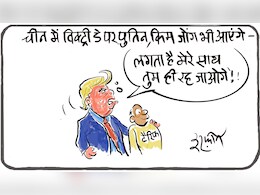 चीन में विक्ट्री डे पर पुतिन, किम जोंग भी आएंगे -
लगता है मेरे साथ
तुम ही रह जाओगे!!
टैरिफ